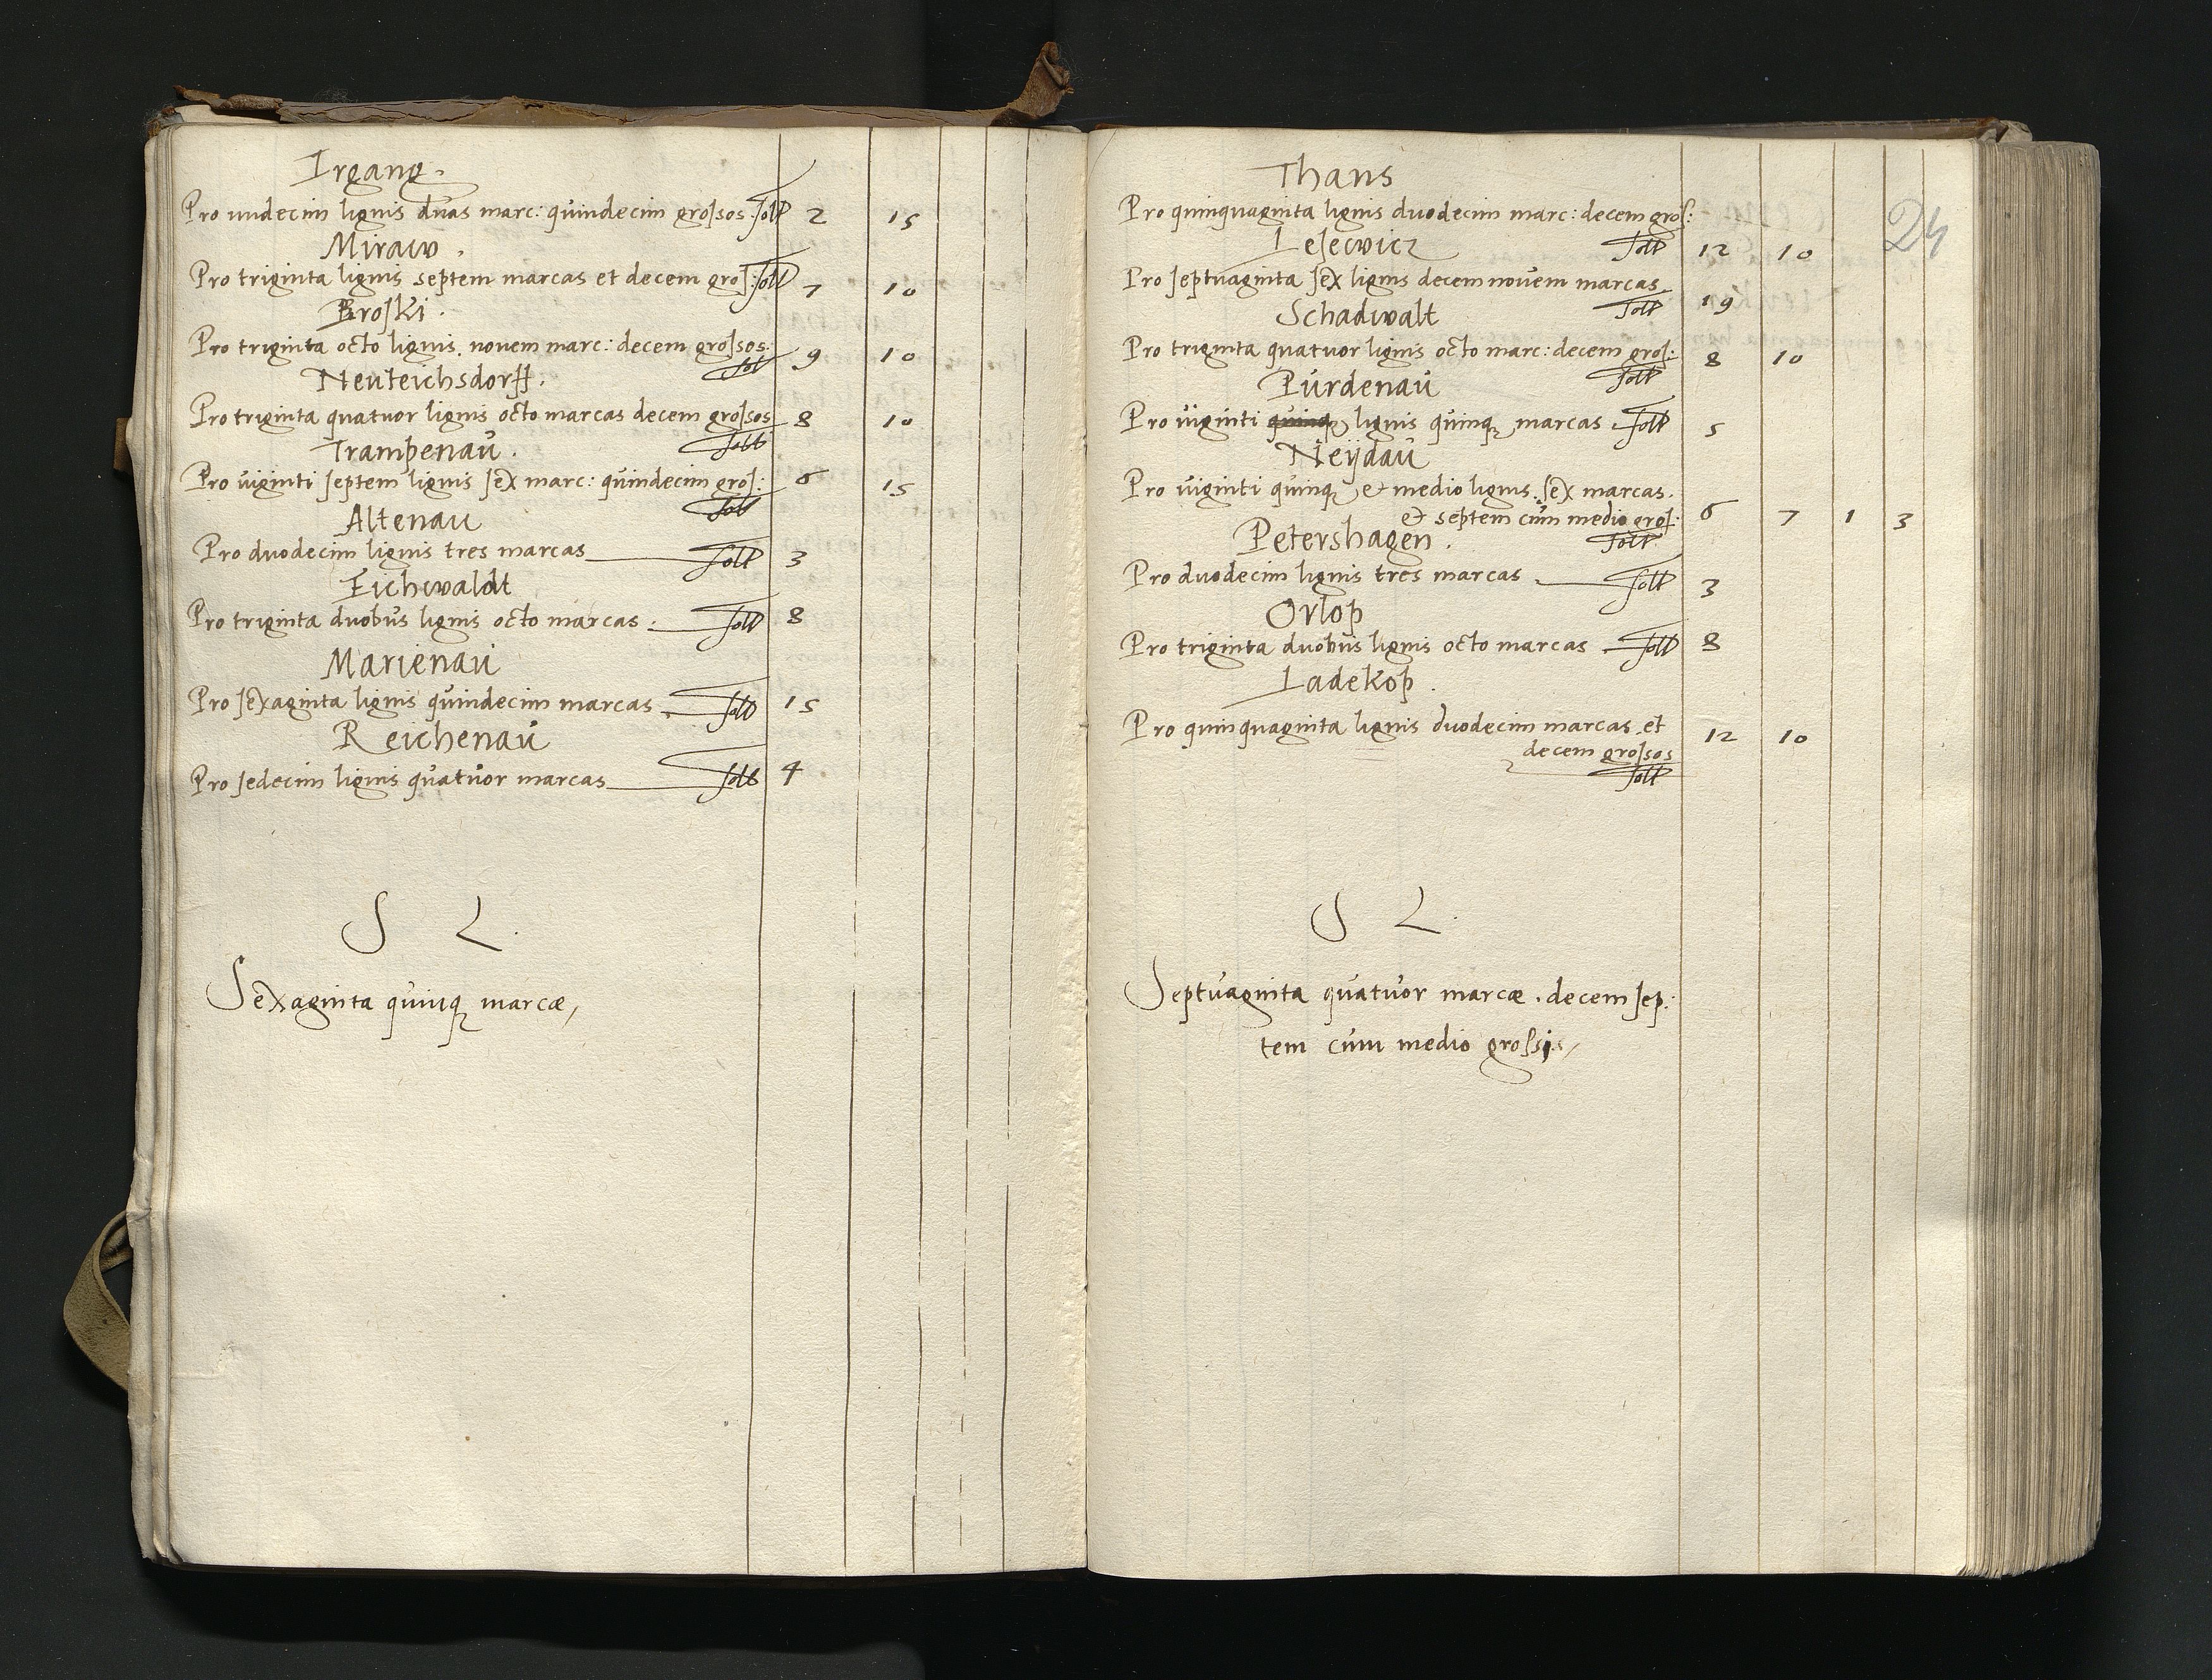 Irgang.
Pro undecim lignis duas marc: quindecim grossos. solt 2 15
Miraw.
Pro triginta lignis septem marcas et decem gros: solt 7 10
Broski.
Pro triginta octo lignis. novem marc: decem grossos: solt 9 10
Neuteichsdorff.
Pro triginta quatuor lignis octo marcas decem grossos solt 8 10
Trampenau.
Pro viginti septem lignis sex marc: quindecim gros: solt 6 15
Altenau
Pro duodecim lignis tres marcas solt 3
Eichwaldt
Pro triginta duobus lignis octo marcas. solt 8
Marienau
Pro sexaginta lignis quindecim marcas. solt 15
Reichenau
Pro sedecim lignis quatuor marcas solt 4
S L.
Sexaginta quinq marcæ,
24
Thans
Pro quinquaginta lignis duodecim marc: decem gros:
solt 12 10
Lesewicz
Pro septuaginta sex lignis decem novem marcas
solt 19
Schadwalt
Pro triginta quatuor lignis octo marc: decem gros: 8 10
solt
Purdenau
Pro viginti quinq lignis quinq marcas. solt 5
Neijdau
Pro viginti quinq et medio lignis. sex marcas.
et septem cum medio gros: 6 7 1 3
solt
Petershagen.
Pro duodecim lignis tres marcas. solt 3
Orlop
Pro triginta duobus lignis octo marcas. solt 8
Ladekop.
Pro quinquaginta lignis duodecim marcas et
decem grossos 12 10
solt
S L.
Septuaginta quatuor marcæ. decem sep:
tem cum medio grossis,